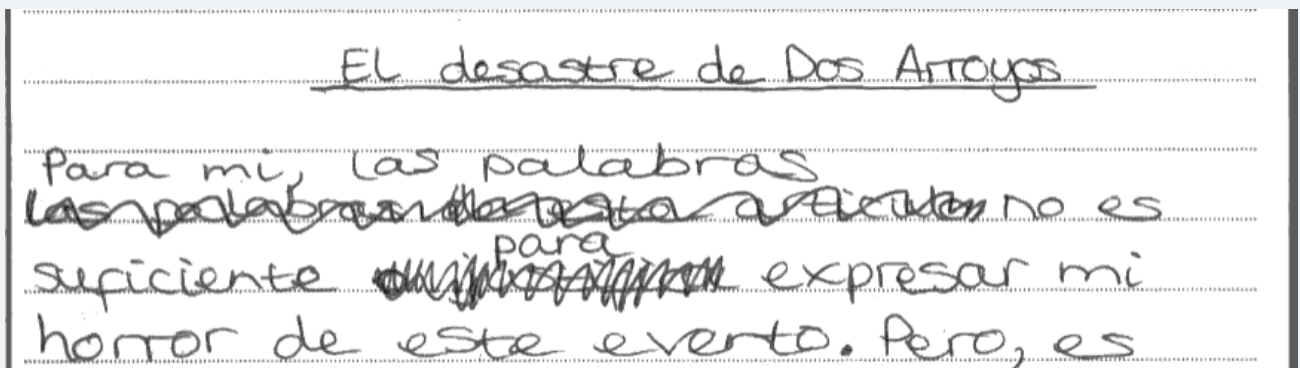 El desastre de Dos Arroyos
Para mi, las palabras
no es
para
suficiente expresar mi
horror de este evento. Pero, es